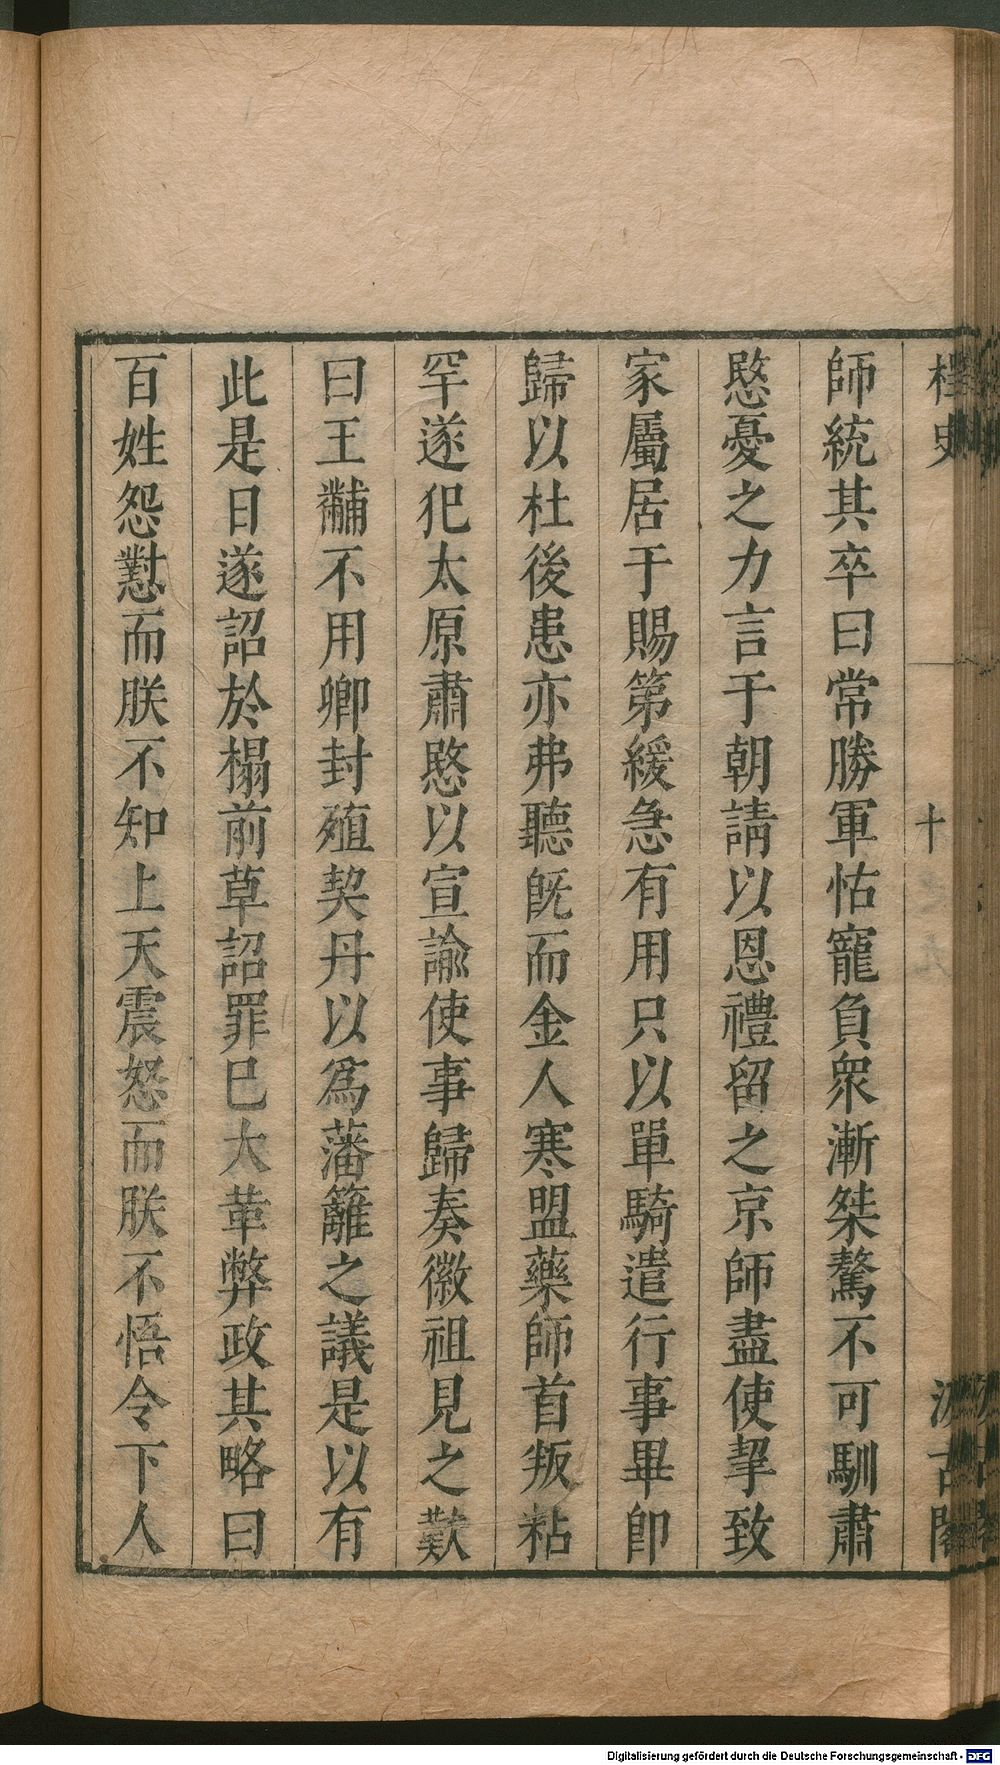 桯史
十
汲古閣
師統其卒曰常勝軍怙寵負衆漸桀驁不可馴肅
愍憂之力言于朝請以恩禮留之京師盡使挈致
家屬居于賜第緩急有用只以單騎遣行事畢卽
歸以杜後患亦弗聽旣而金人寒盟藥師首叛粘
罕遂犯太原肅愍以宣諭使事歸奏徽祖見之歎
曰王黼不用卿封殖契丹以爲藩籬之議是以有
此是日遂詔於榻前草詔罪已大革弊政其略曰
百姓怨懟而朕不知上天震怒而朕不悟令下人
Digitalisierung gefördert durch die Deutsche Forschungsgemeinschaft - DFG